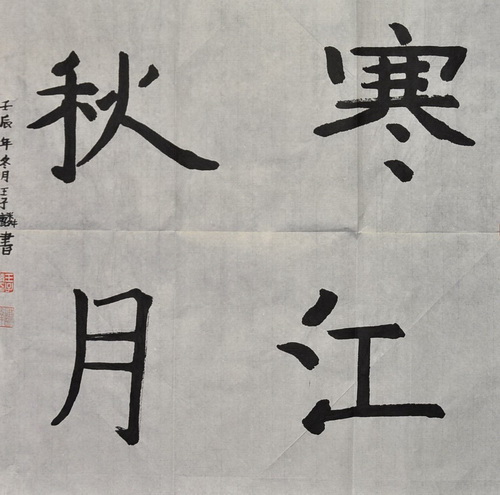 寒江
秋月
壬辰年冬月王子麟書